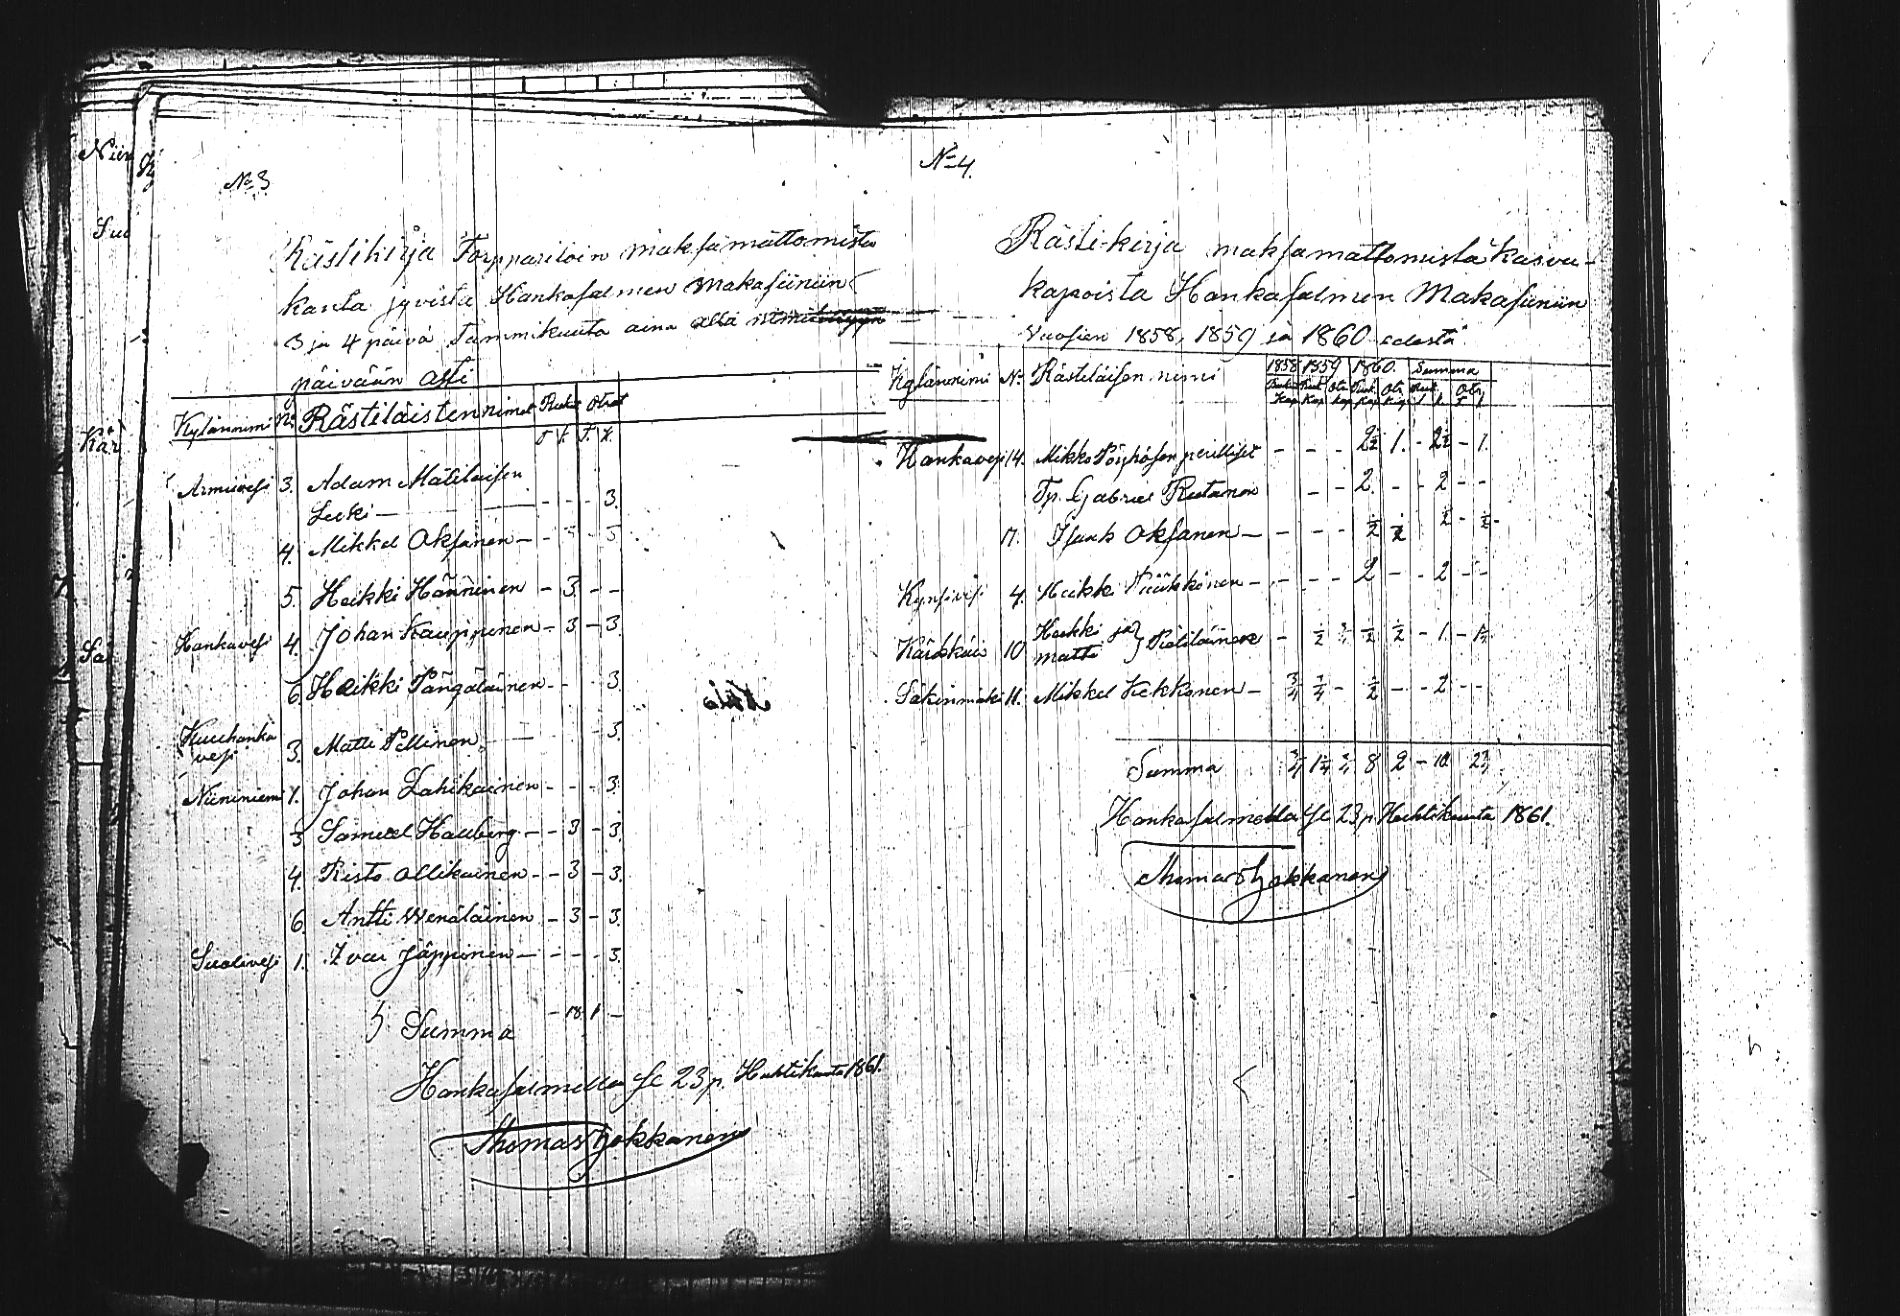 Niin
Suo
Kär
Sa
No 3
Rästikirja Torppariloin maksamattomista
kanta jyvistä Hankasalmen Makasiiniin
3 ja 4 päivä Tammikuuta aina allä
päivään asti
Kylännimi No Rästiläisten nimet Rukit Otrat
T. K. T. K.
Armivesi 3. Adam Mätiläisen
Leski — - - - 3.
4. Mikkel Oksanen - - - 5
5. Heikki Hänninen - 3 - -
Hankavesi 4. Johan Kauppinen - 3 - 3.
6. Heikki Pängäläinen - - - 3.
Kuuhanka
vesi 3. Matti Pellinen - 3.
Niininiemi 1. Johan Lahikainen - - - 3.
3 Samuel Hauberg - 3 - 3.
4. Risto Ollikainen - 3 - 3.
6. Antti Wenäläinen - 3 - 3.
Suolivesi 1. Ivar Jäppinen - - - 3.
Summa - 18 1 -
Hankasalmella se 23 p. Huhtikuuta 1861.
Thomas Tyrkkönen
No 4.
Rästi-kirja maksamattomista kasvu-
kapoista Hankasalmen Makasiiniin
vuosien 1858, 1859 ja 1860 edestä
Kylännimi No Rästiläisen nimi 1858 1859 1860. Summa
Hankavesi 14. Mikko Pöyhösen perilliset - - - 2½ 1. - 2½ - 1.
Tp. Gabriel Rutanen - - 2. - - 2 - -
17. Isaak Oksanen - - - - ½ ½ ½ - ½
Kynsivesi 4. Heikki Pääkkönen - - - - 2 - - 2 - -
Kärkkäis 10 Heikki ja
Matti } Pieliläinen - ½ ¾ ½ ½ - 1. - 1¼
Säkinmäki 11. Mikkel Kekkonen - ¾ ¾ - ½ - - 2 - -
Summa ¾ 1¼ ¾ 8 2 - 10 2¾
Hankasalmella se 23 p Huhtikuuta 1861.
Thomas Tyrkkönen